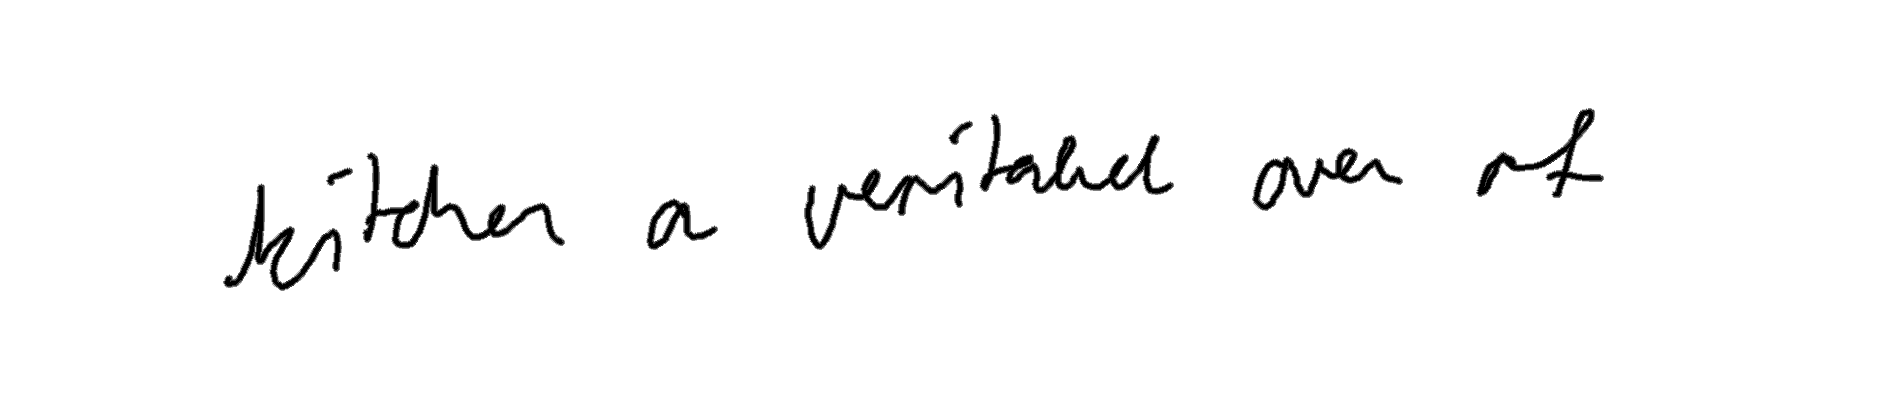 kitchen a veritabed oven of